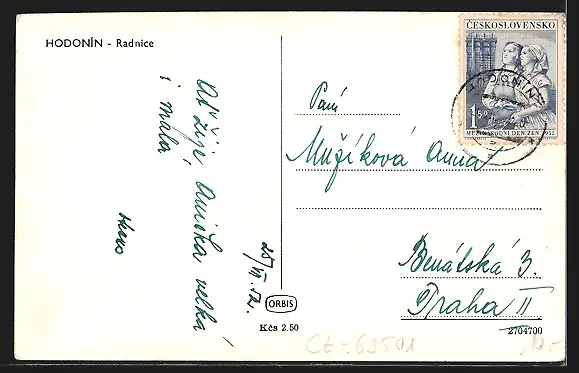 HODONÍN - Radnice
Ať žije, Anička velká
i malá
25/VI. 52.
ORBIS
Kčs 2.50
ČESKOSLOVENSKO
1.50
MEZINÁRODNÍ DEN ŽEN 1952
HODONÍN
Paní
Mužíková Anna
Benátská 3.
Praha II
2704700
CZ-69501